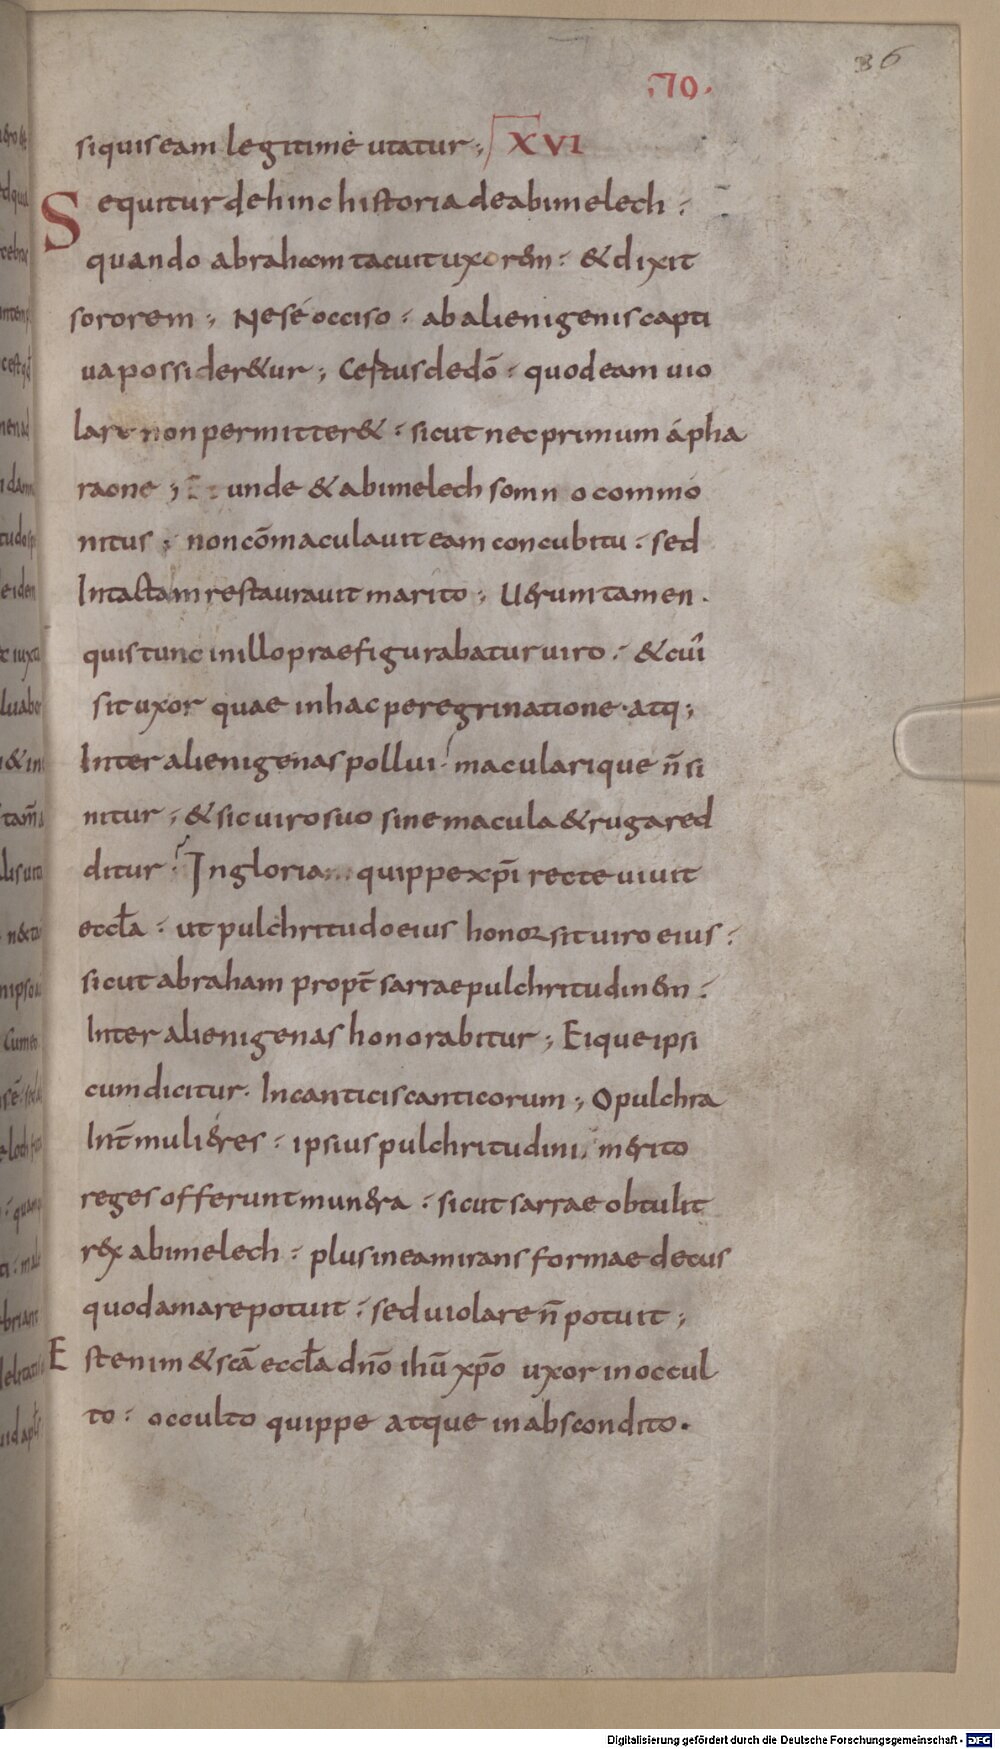 36
;70.
si quis eam legitime utatur; XVI
Sequitur dehinc historia de abimelech:
quando abraham tacuit uxorem: & dixit
sororem; Ne sé occiso: ab alienigenis capti
ua possider&ur; Certus de dō: quod eam uio
lare non permitter&: sicut nec primum á pha
raone; Et unde & abimelech somno commo
nitus; non cōmaculauit eam concubitu: sed
Intactam restaurauit marito; Uerum tamen.
quis tunc in illo praefigurabatur uiro: & cuī
sit uxor quae in hac peregrinatione. atq;
Inter alienigenas pollui maculari que n̄ si
nitur; & sic uiro suo sine macula & ruga red
ditur: In gloria quippe xp̄i recte uiuit
eccła: ut pulchritudo eius honor sit uiro eius:
sicut abraham propt̄ sarrae pulchritudinem:
Inter alienigenas honorabitur; Ei que ipsi
cum dicitur. In canticis canticorum; O pulchra
Int̄ mulieres: ipsius pulchritudini merito
reges offerunt munera: sicut sarrae obtulit
rex abimelech: plus in ea mirans formae decus
quod amare potuit: sed uiolare n̄ potuit;
Est enim & scā eccła dn̄o ihū xp̄o uxor in occul
to: occulto quippe atque in abscondito.
Digitalisierung gefördert durch die Deutsche Forschungsgemeinschaft - DFG